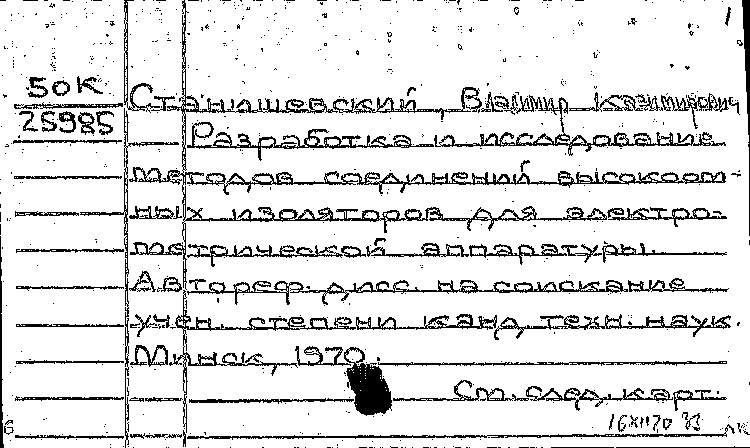 1
50К
25985
Станишевский, Владимир Казимирович
Разработка и исследование
методов соединений высокоом-
ных изоляторов для электро-
метрической аппаратуры.
Автореф. дисс. на соискание
учен. степени канд. техн. наук.
Минск, 1970.
См. след. карт.